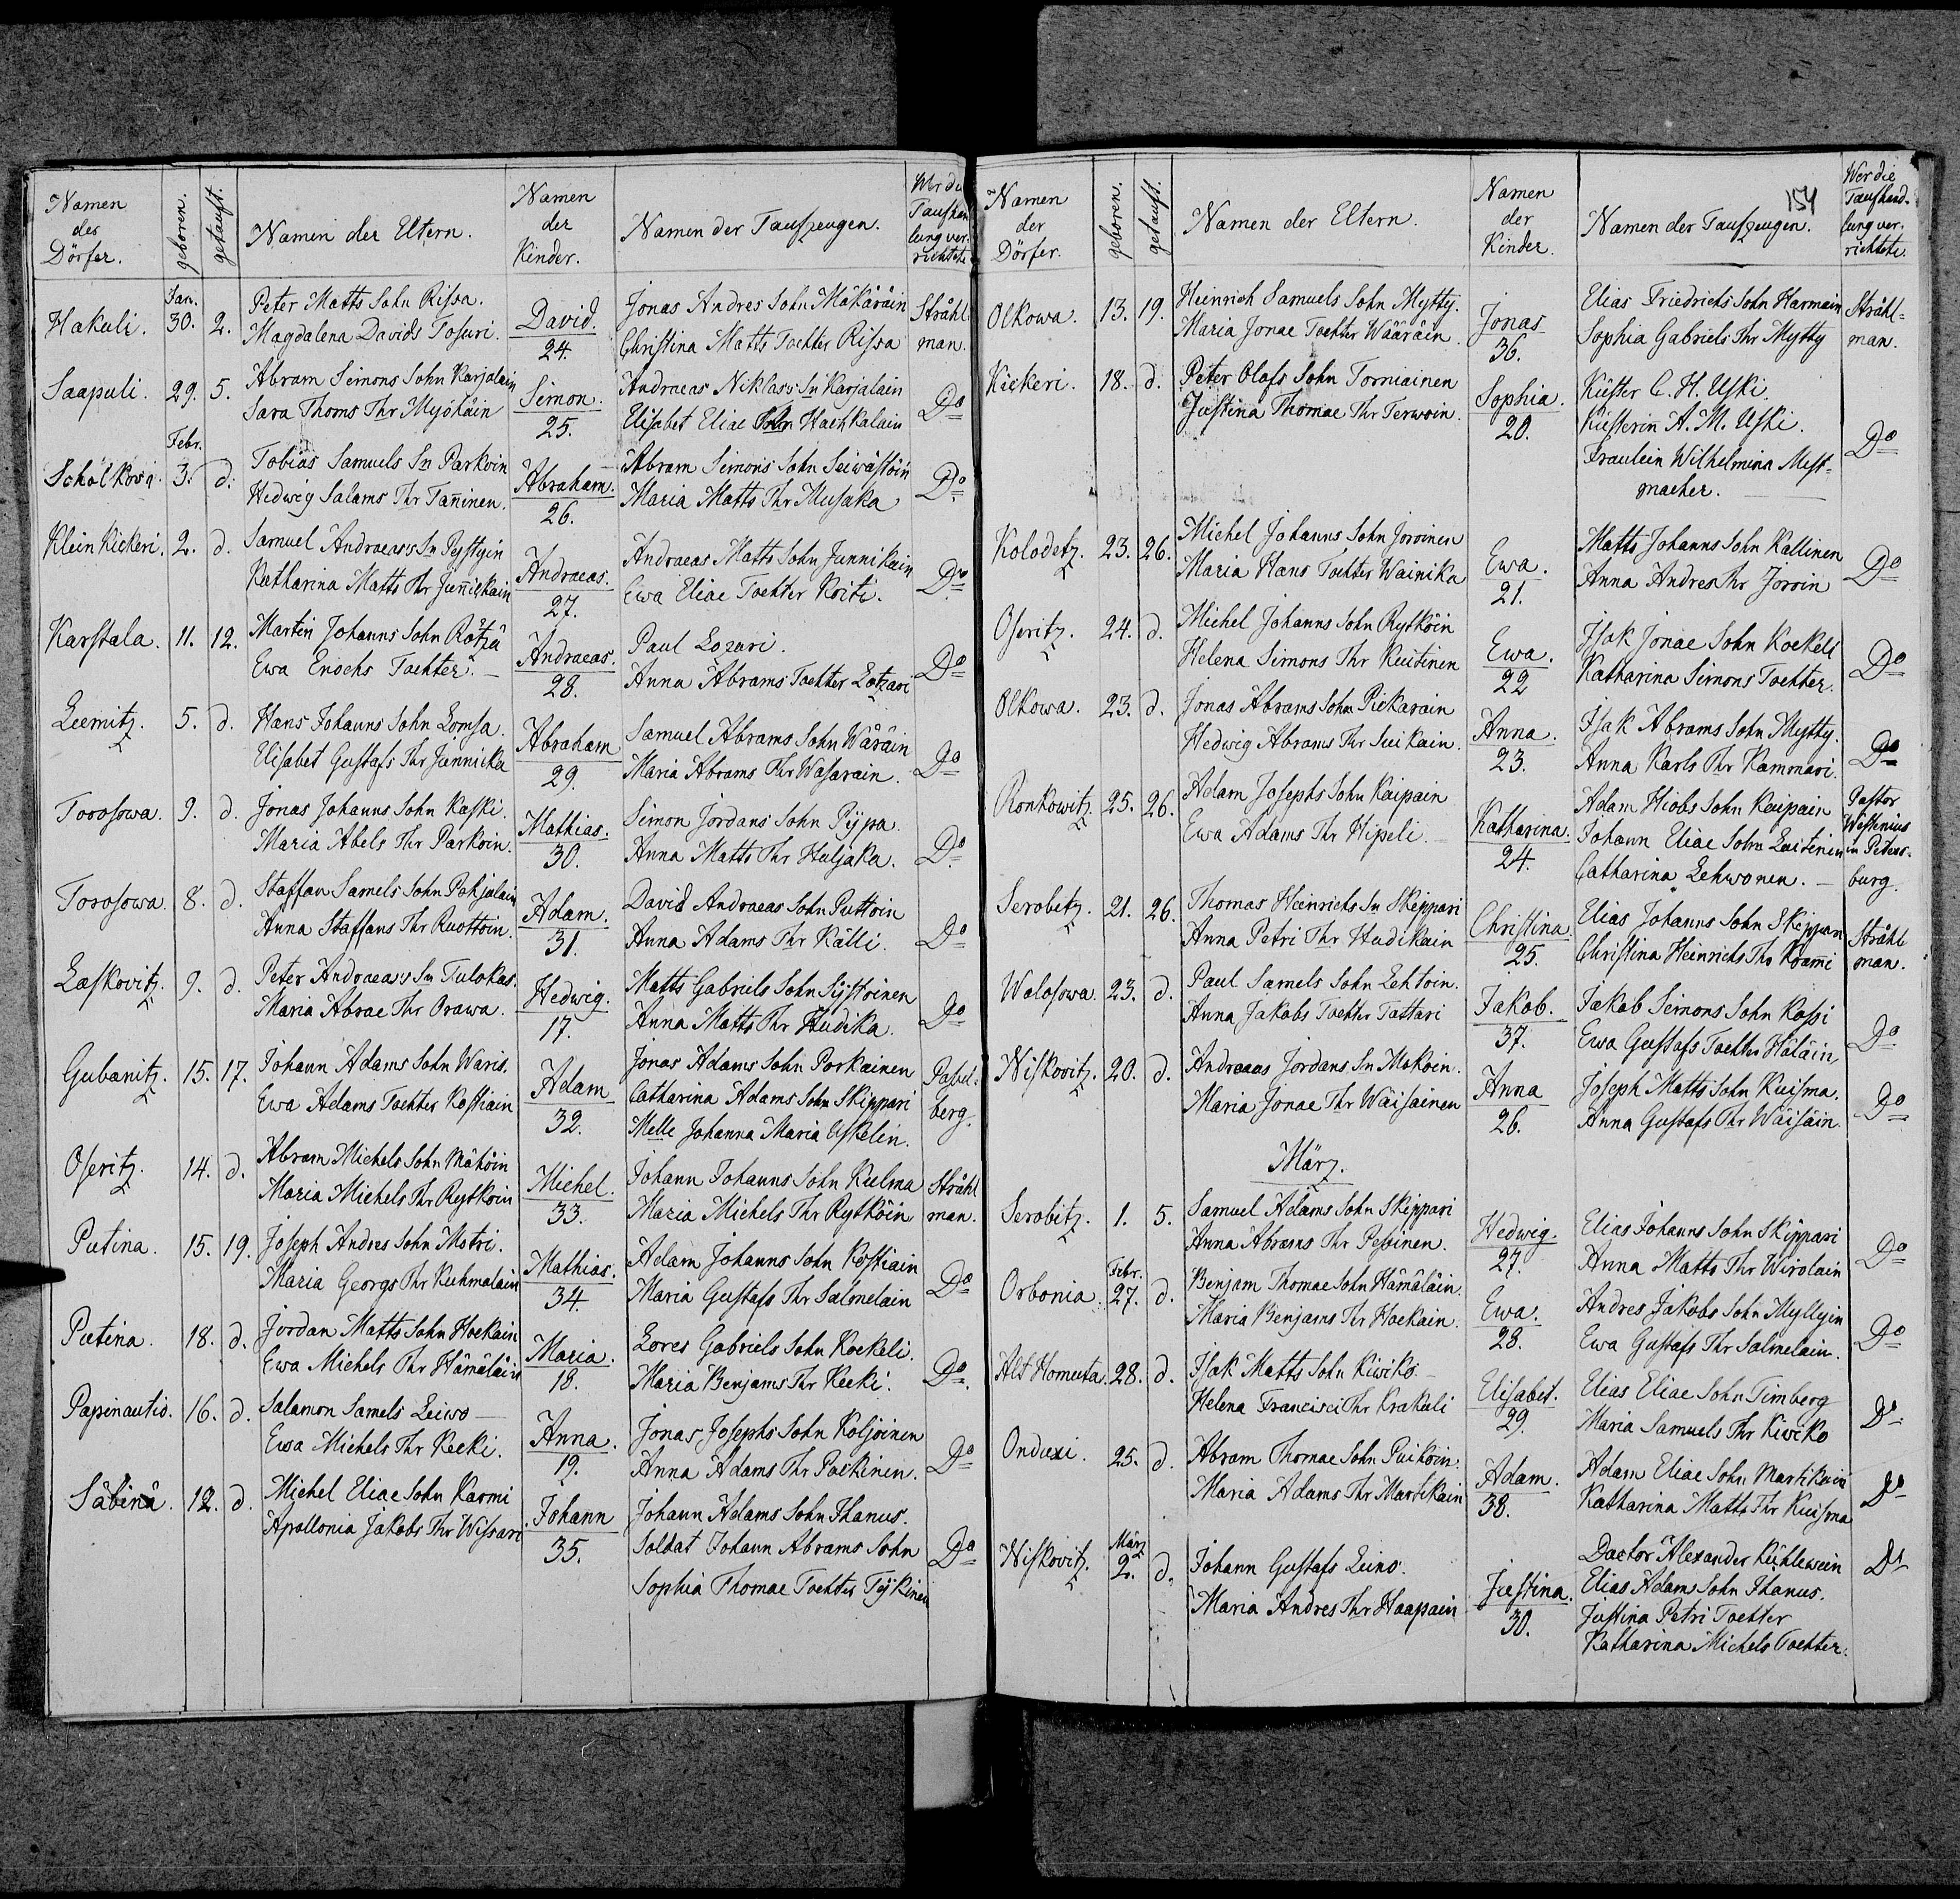 Namen der Dörfer. geboren. getauft. Namen der Eltern. Namen der Kinder. Namen der Taufzeugen. Wer die Taufhandlung verrichtete
Jan.
Hakuli. 30. 2. Peter Matts Sohn Rissa. David. Jonas Andres Sohn Mäkäräin Stråhl
Magdalena Davids Tosuri. 24. Christina Matts Tochter Rissa man.
Saapuli. 29. 5. Abram Simons Sohn Karjalain Simon. Andraeas Niklas's Sn Karjalain Do
Sara Thoms Thr Myöhäin 25. Elisabet Eliae Thr Hachkalain
Febr.
Schölkowa. 3. d. Tobias Samuels Sn Parkoin Abraham. Abram Simons Sohn Seiwästöin Do
Hedwig Salams Thr Tan̄inen. 26. Maria Matts Thr Musaka
Klein Kickeri. 2. d. Samuel Andraeas's Sn Pystyin Andraeas. Andraeas Matts Sohn Junnikain Do
Katharina Matts Thr Jun̄ickain 27. Ewa Eliae Tochter Koiti.
Karstala. 11. 12. Martin Johanns Sohn Rötzä Andraeas. Paul Lozari. Do
Ewa Enochs Tochter. — 28. Anna Abrams Tochter Lotzari
Leemitz. 5. d. Hans Johanns Sohn Lomsa. Abraham Samuel Abrams Sohn Wäräin Do
Elisabet Gustafs Thr Junnicka 29. Maria Abrams Thr Wasarain.
Torosowa. 9. d. Jonas Johanns Sohn Kaski. Mathias. Simon Jordans Sohn Pÿpa. Do
Maria Abels Thr Parkoin. 30. Anna Matts Thr Huljaka.
Torosowa. 8. d. Staffan Samels Sohn Pohjalain Adam. David Andraeas Sohn Puttoin Do
Anna Staffans Thr Ruottoin. 31. Anna Adams Thr Källi.
Laskovitz. 9. d. Peter Andraeas's Sn Tulokas. Hedwig. Matts Gabriels Sohn Sÿstoinen Do
Maria Abrae Thr Orawa. 17. Anna Matts Thr Hudika.
Gubanitz. 15. 17. Johann Adams Sohn Waris. Adam Jonas Adams Sohn Porkainen Passel-
Ewa Adams Tochter Kostiain 32. Catharina Adams Sohn Skippari berg.
Melle Johanna Maria Uskelin.
Oseritz. 14. d. Abram Michels Sohn Mähöin Michel. Johann Johanns Sohn Kulma Stråhl
Maria Michels Thr Rytkoin 33. Maria Michels Thr Rytköin man.
Putina. 15. 19. Joseph Andres Sohn Motri. Mathias. Adam Johanns Sohn Kostiain Do
Maria Georgs Thr Kuhmalain 34. Maria Gustafs Thr Salmelain
Putina. 18. d. Jordan Matts Sohn Hockain Maria. Lores Gabriels Sohn Kockeli. Do
Ewa Michels Thr Hämäläin 18. Maria Benjams Thr Kecki.
Papinautio. 16. d. Salamon Samels Leiwo — Anna. Jonas Josephs Sohn Koljoinen Do
Ewa Michels Thr Kecki. 19. Anna Adams Thr Pockinen.
Säbinä. 12. d. Michel Eliae Sohn Karmi Johann Johann Adams Sohn Ihanus.
Apollonia Jakobs Thr Wissari 35. Soldat Johann Abrams Sohn Do
Sophia Thomae Tochter Tÿkinen
154
Namen der Dörfer. geboren. getauft. Namen der Eltern. Namen der Kinder. Namen der Taufzeugen. Wer die Taufhand-lung ver-richtete.
Olkowa. 13. 19. Heinrich Samuels Sohn Mytty. Jonas Elias Friedrichs Sohn Harmain Stråhl-
Maria Jonae Tochter Wääräin. 36. Sophia Gabriels Thr Mytty man.
Kickeri. 18. d. Peter Olofs Sohn Torniainen Sophia. Küster C. H. Uski.
Justina Thomae Thr Terwoin. 20. Küsterin A. M. Uski. Do
Fraulein Wilhelmina Mest-
macher.
Kolodetz. 23. 26. Michel Johanns Sohn Joroinen Ewa. Matts Johanns Sohn Kallinen Do
Maria Hans Tochter Wainika 21. Anna Andres Thr Joroin
Oseritz. 24. d. Michel Johanns Sohn Rytköin Ewa. Isak Jonae Sohn Kockeli Do
Helena Simons Thr Kuitinen 22 Katharina Simons Tochter.
Olkowa. 23. d. Jonas Abrams Sohn Pickarain Anna. Isak Abrams Sohn Mytty. Do
Hedwig Abrams Thr Suikain. 23. Anna Karls Thr Kammari.
Ronkowitz. 25. 26. Adam Josephs Sohn Kaipain Katharina. Adam Hiobs Sohn Kaipain Pastor
Ewa Adams Thr Hipeli. 24. Johann Eliae Sohn Luitinen in Peters-
Catharina Lehwonen. — burg.
Serobetz. 21. 26. Thomas Heinrichs Sn Skippari Christina Elias Johanns Sohn Skippari Stråhl
Anna Petri Thr Hudikain 25. Christina Heinrichs Thr man.
Wolosowa. 23. d. Paul Samels Sohn Lehtoin. Jakob. Jakob Simons Sohn Kossi Do
Anna Jakobs Tochter Tattari 37. Ewa Gustafs Tochter Häläin
Niskovitz. 20. d. Andraeas Jordans Sn Mokoin. Anna Joseph Matts Sohn Kuisma. Do
Maria Jonae Thr Wäisäinen 26. Anna Gustafs Thr Wäisäin.
März.
Serobitz. 1. 5. Samuel Adams Sohn Skippari Hedwig. Elias Johanns Sohn Skippari Do
Anna Abrams Thr Pessinen. 27. Anna Matts Thr Wirolain
Febr.
Orbonia. 27. d. Benjam Thomae Sohn Hämäläin. Ewa. Andres Jakobs Sohn Myllyin Do
Maria Benjams Thr Hockain. 28. Ewa Gustafs Thr Salmelain.
Alt Homuta. 28. d. Isak Matts Sohn Kiwiko. Elisabet. Elias Eliae Sohn Timberg Do
Helena Francisci Thr Krakuli 29. Maria Samuels Thr Kiwiko
Onduxi. 25. d. Abram Thomae Sohn Puikoin. Adam. Adam Eliae Sohn Martikain Do
Maria Adams Thr Martikain 38. Katharina Matts Thr Kuisma
März
Niskovitz. 2. d. Johann Gustafs Leino. Justina. Doctor Alexander Kühlewein Do
Maria Andres Thr Haapain 30. Elias Adam Sohn Ihanus.
Justina Petri Tochter
Katharina Michels Tochter.